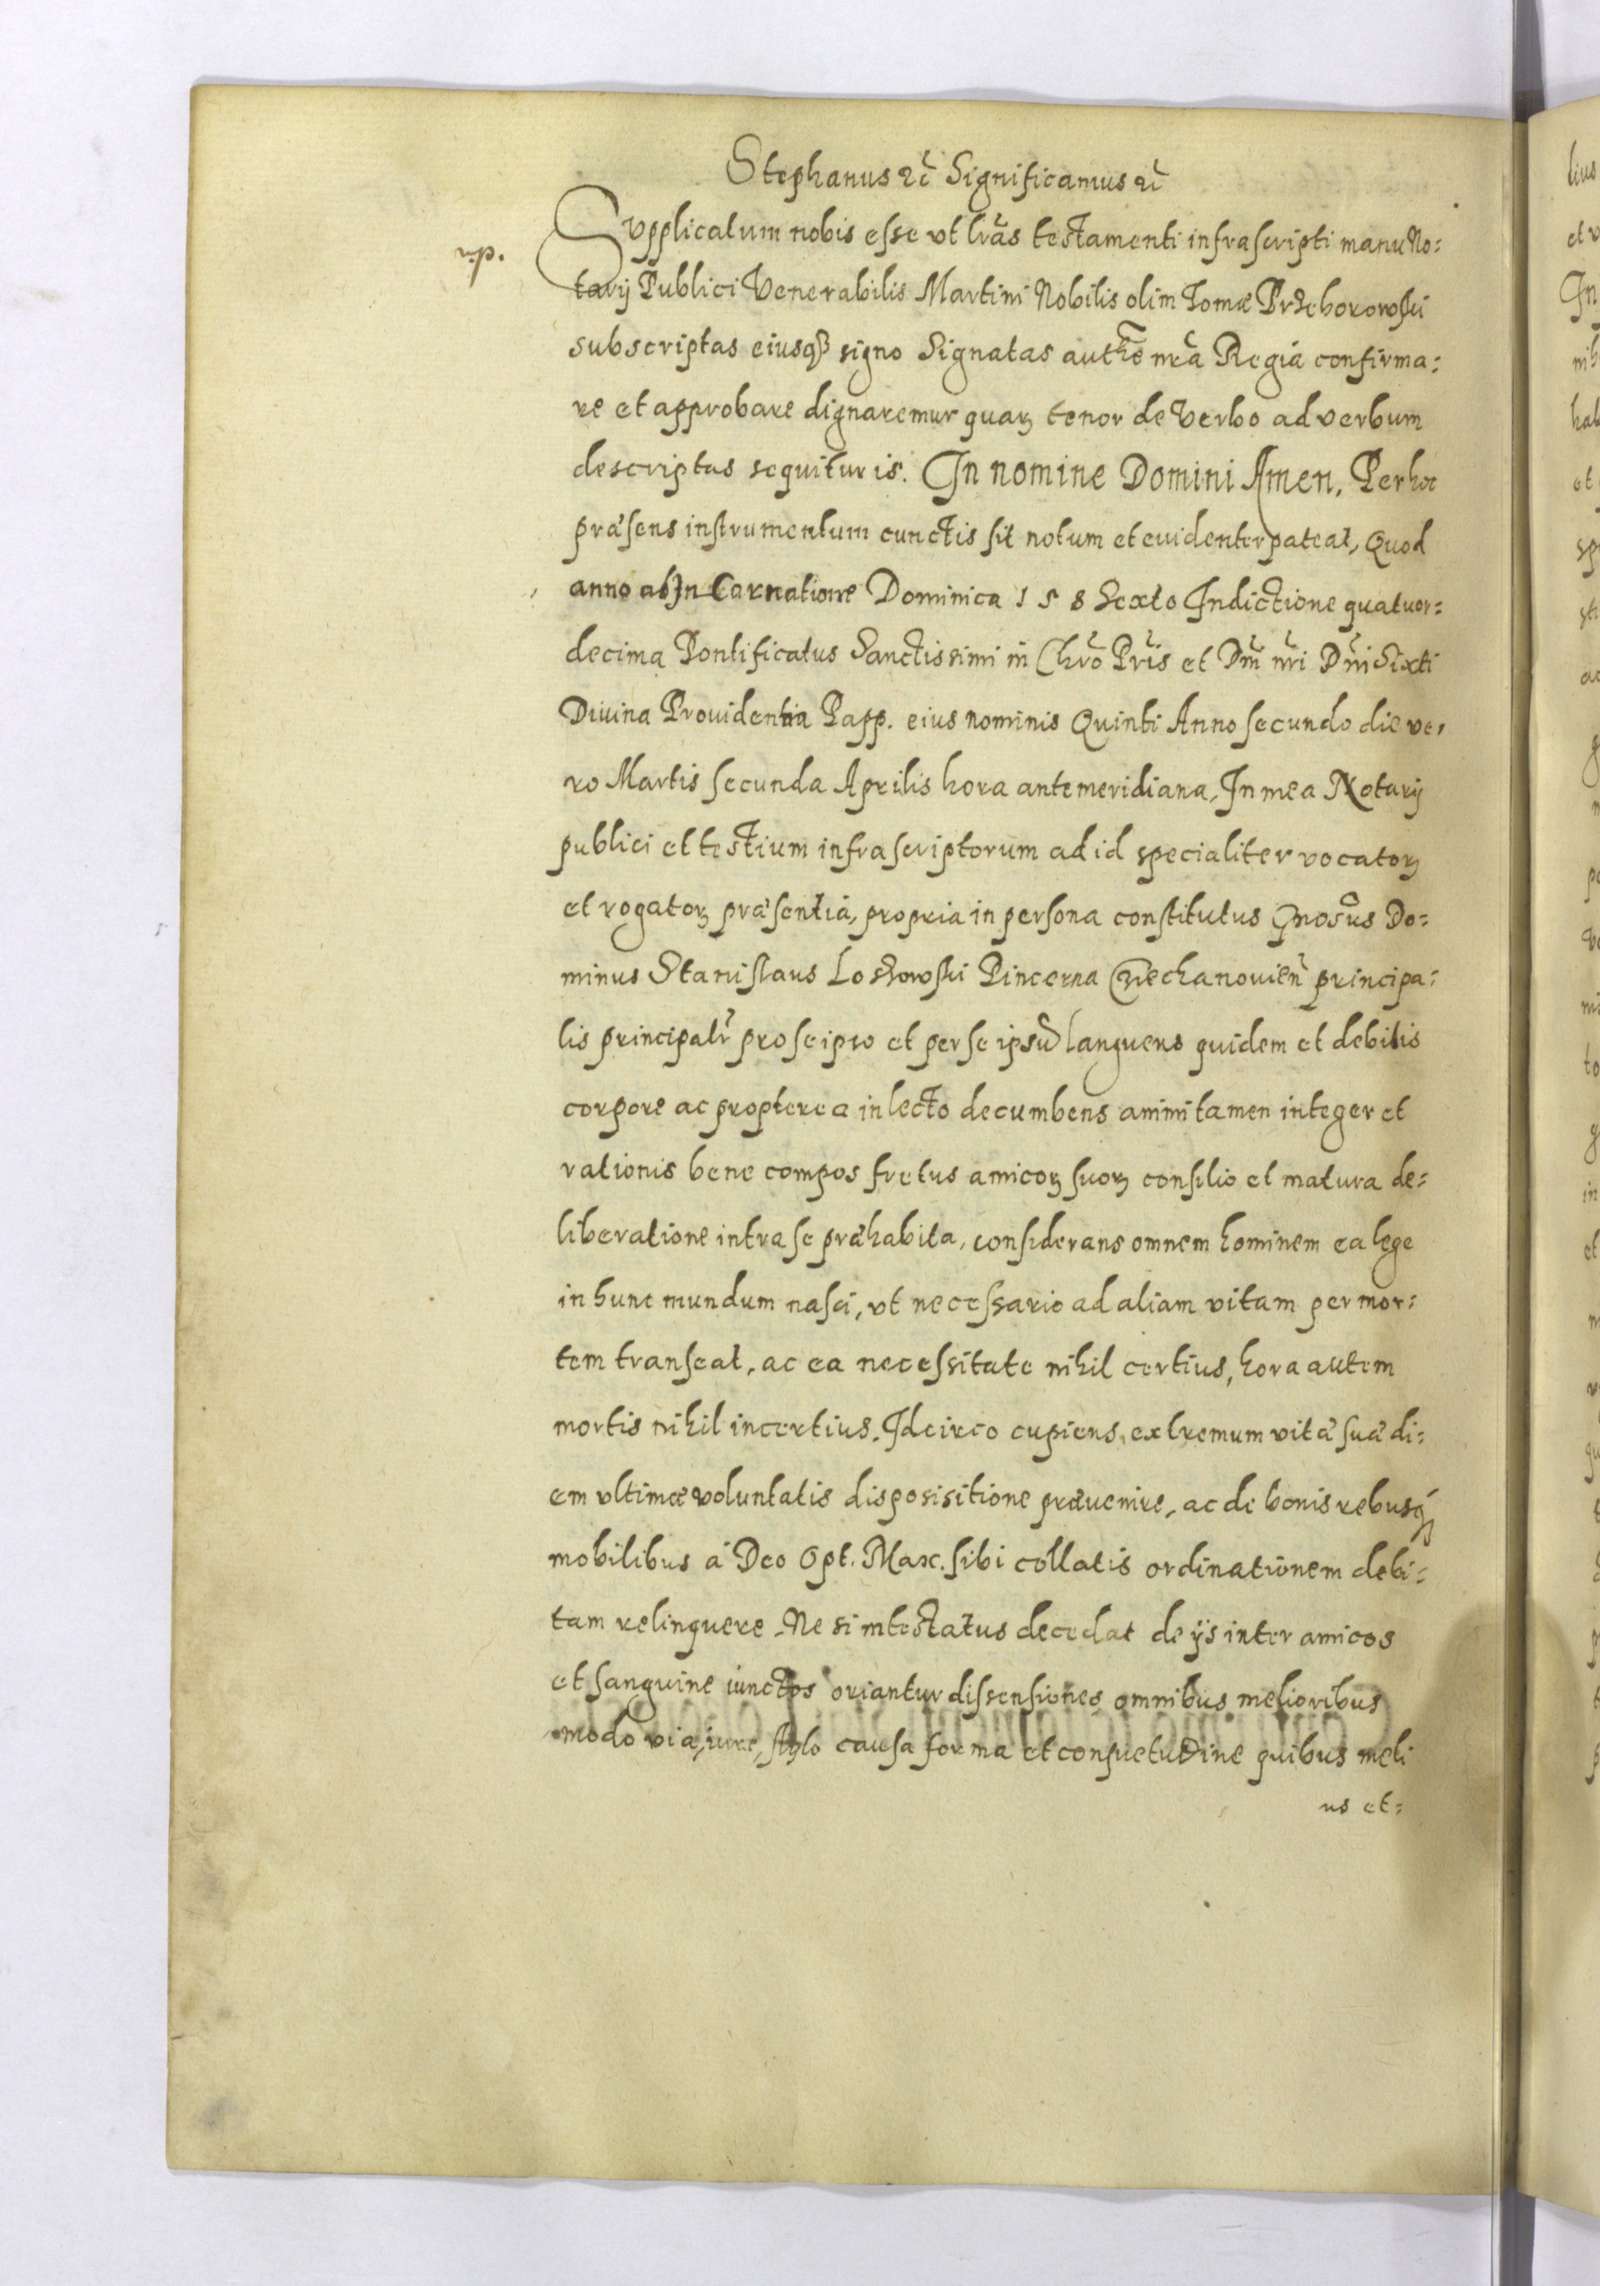 Stephanus ꝛc̃ Significamus ꝛc̃
Supplicatum nobis esse vt lr̃as testamenti infrascripti manu No:
tarij Publici Venerabilis Martini Nobilis olim Tomæ Przeborowski
subscriptas eiusqꝫ signo Signatas authe nr̃a Regiá confirma:
re et approbare dignaremur quarꝫ tenor de Verbo ad verbum
descriptas sequitur is. In nomine Domini Amen. Per hoc
præsens instrumentum cunctis sit notum et euidenter pateat, Quod
anno ab In Carnatione Dominica 1 5 8 Sexto Indictione quatuor:
decima Pontificatus Sanctissimi in Chr̃o Pr̃is et Dñi nr̃i Dñi Sixti
Diuina Prouidentia Papp. eius nominis Quinti Anno secundo die ve,
ro Martis secunda Aprilis hora antemeridiana, In mea Notarij
publici et testium infrascriptorum ad id specialiter vocatorꝫ
et rogatorꝫ præsentiá, propria in persona constitutus Gnosus Do:
minus Stanislaus Loskowski Pincerna Czechanouień principa:
lis principalr̃ pro se ipso et per se ipsũ languens quidem et debilis
corpore ac propterea in lecto decumbens animi tamen integer et
rationis bene compos fretus amicorꝫ suorꝫ consilio et matura de:
liberatione intra se præhabita, considerans omnem hominem ea lege
in hunc mundum nasci, vt necessario ad aliam vitam per mor:
tem transeat, ac ea necessitate nihil certius, hora autem
mortis nihil incertius. Idcirco cupiens, extremum vitæ suæ di:
em vltimæ voluntatis disposisitione præuenire, ac de bonis rebusqꝫ
mobilibus á Deo Opt. Max. sibi collatis ordinationem debi:
tam relinquere. Ne si intestatus decedat de ijs inter amicos
et sanguine iunctos oriantur dissensiones omnibus melioribus
modo via, iure, stylo causa forma et consuetudine quibus meli
us et: